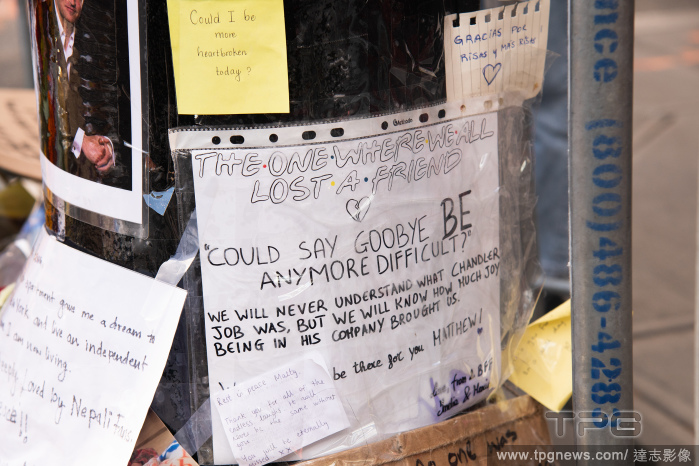 Could I be
more
heartbroken
today?
GRACIAS POR
RISAS Y MÁS RISAS
THE·ONE·WHERE·WE·ALL
LOST·A·FRIEND
"COULD SAY GOOBYE BE
ANYMORE DIFFICULT?"
WE WILL NEVER UNDERSTAND WHAT CHANDLER
JOB WAS, BUT WE WILL KNOW HOW MUCH JOY
BEING IN HIS COMPANY BROUGHT US.
be there for you MATTHEW!
gave me a dream to
and live an independent
living.
loved by Nepali Fans
Rest in peace Matty.
Thank you for all of the
endless laughs
the same without
you
eternally
xx
one was
(800)486-428
TPG
www.tpgnews.com / 達志影像